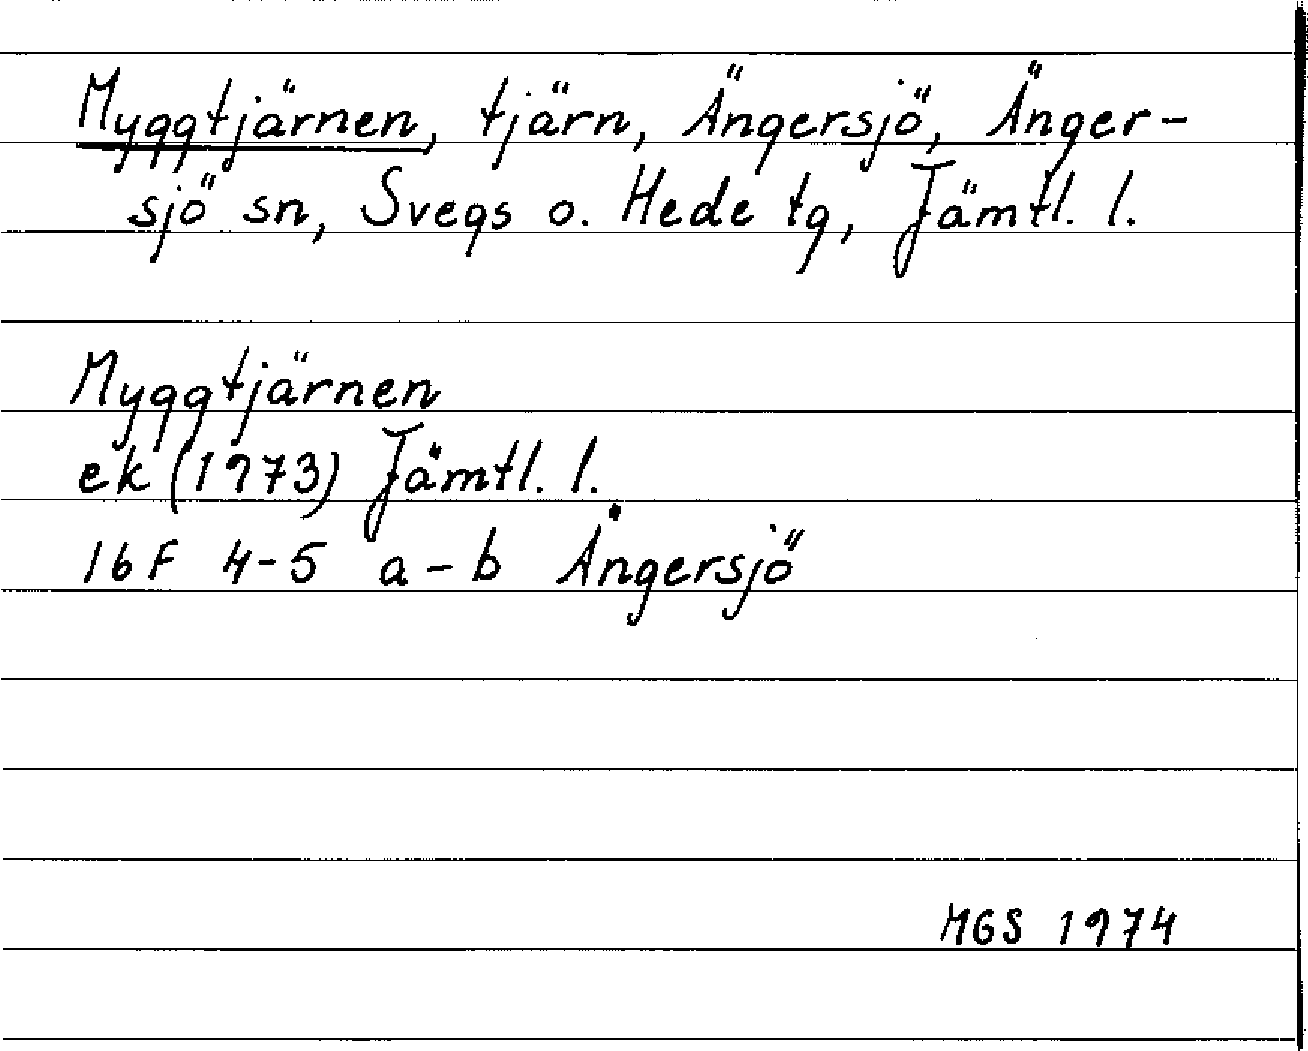 Myggtjärnen, tjärn, Ängersjö, Änger-
sjö sn, Svegs o. Hede tg, Jämtl. l.
Myggtjärnen
ek (1973) Jämtl. l.
16F 4-5 a-b Ängersjö
MGS 1974